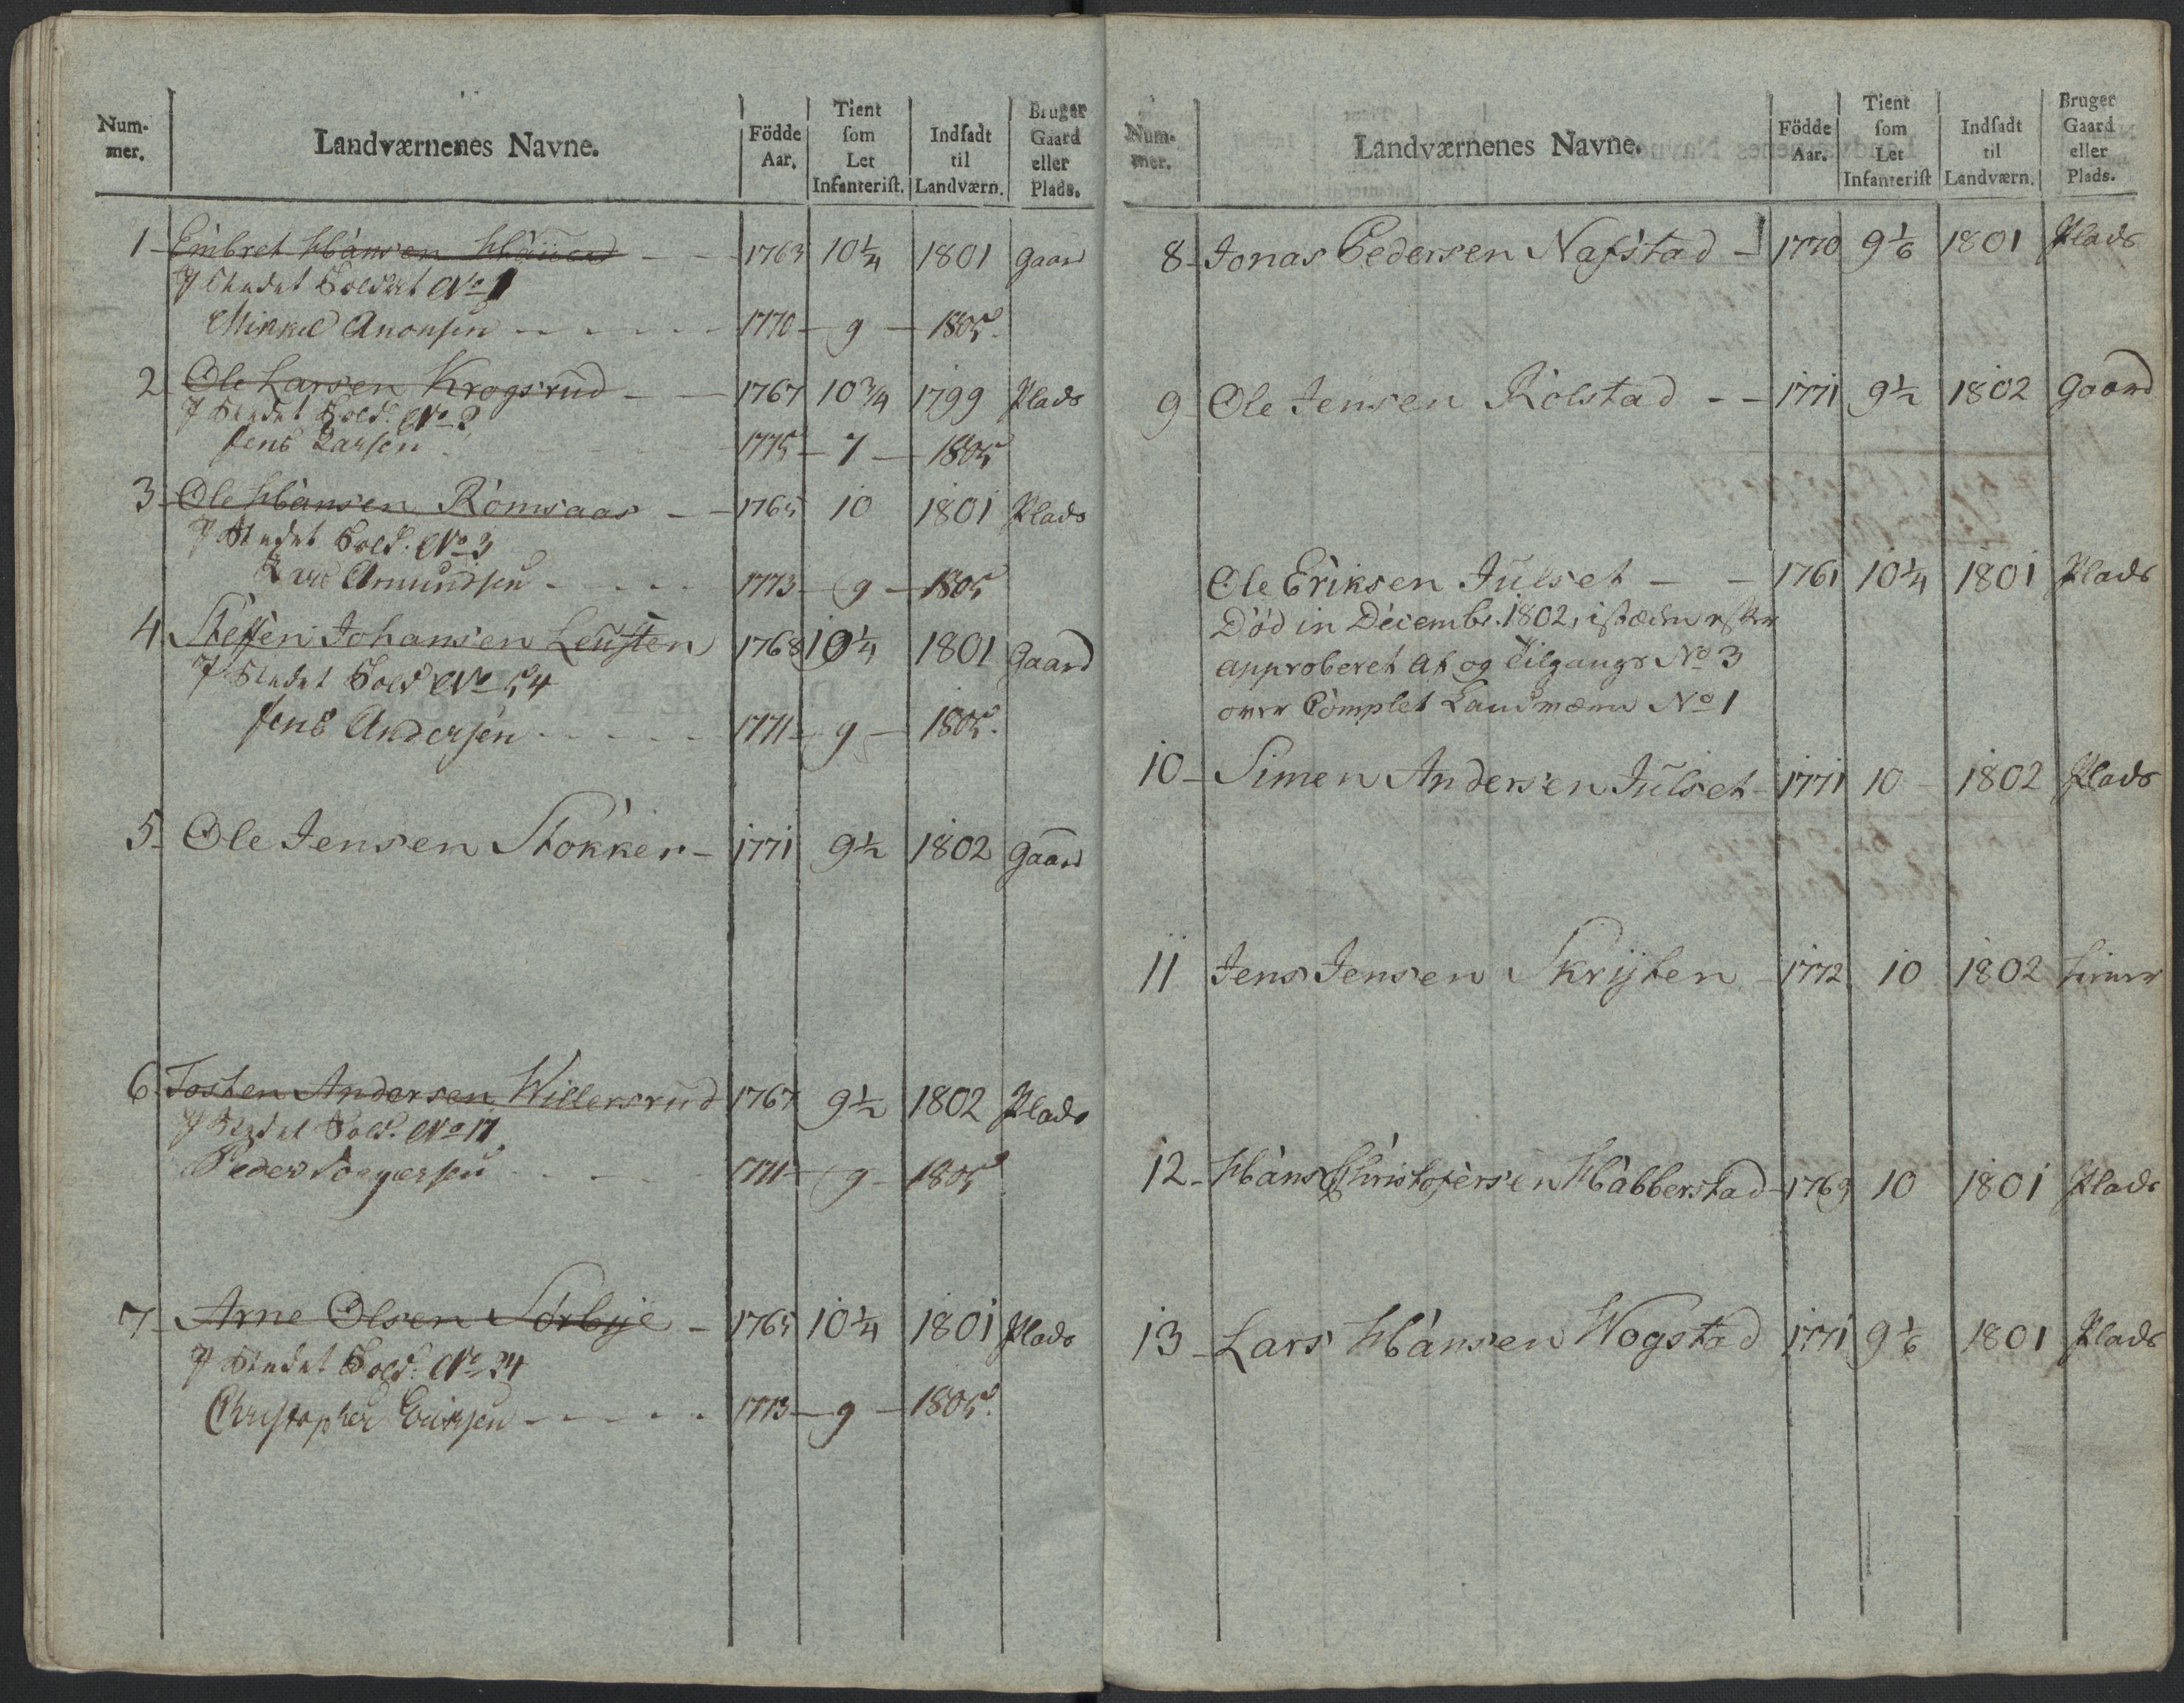 Num-mer. Landværnenes Navne. Födde Aar. Tient som Let Infanterist. Indsadt til Landværn. Bruger Gaard eller Plads.
1 Embret Hansen 1763 10 1/4 1801 Gaard
I Stædet Soldat No 1
Mikkel Anonsen 1770 9 1805
2 Ole Larsen Krogsrud 1767 10 3/4 1799 Plads
I Stædet Sold. No 2
Jens Larsen 1775 7 1805
3 Ole Hansen Romsaas 1765 10 1801 Plads
I Stædet Sold. No 3
Lars Amundsen 1773 9 1805
4 Steffen Johansen Leusten 1768 10 1/4 1801 Gaard
I Stædet Sold No 54
Jens Andersen 1771 9 1805
5 Ole Jensen Stokker 1771 9 1/2 1802 Gaard
6 Tosten Andersen Willersrud 1767 9 1/2 1802 Plads
I Stædet Sold. No 17
Peder 1771 9 1805
7 Arne Olsen Sörbye 1765 10 1/4 1801 Plads
I Stædet Sold. No 34
Christopher Eriksen 1773 9 1805
Num-mer. Landværnenes Navne. Födde Aar. Tient som Let Infanterist Indsadt til Landværn. Bruger Gaard eller Plads.
8 Jonas Pedersen Nafstad 1770 9 1/6 1801 Plads
9 Ole Jensen Rolstad 1771 9 1/2 1802 Gaard
Ole Eriksen Julset 1761 10 1/4 1801 Plads
Död in Decembr. 1802, istæden efter
approberet Af og Tilgangs No 3
over Complet Landværn No 1
10 Simen Andersen Julset 1771 10 1802 Plads
11 Jens Jensen Skrijten 1772 10 1802
12 Hans Christofersen Habberstad 1769 10 1801 Plads
13 Lars Hansen Wogstad 1771 9 1/6 1801 Plads